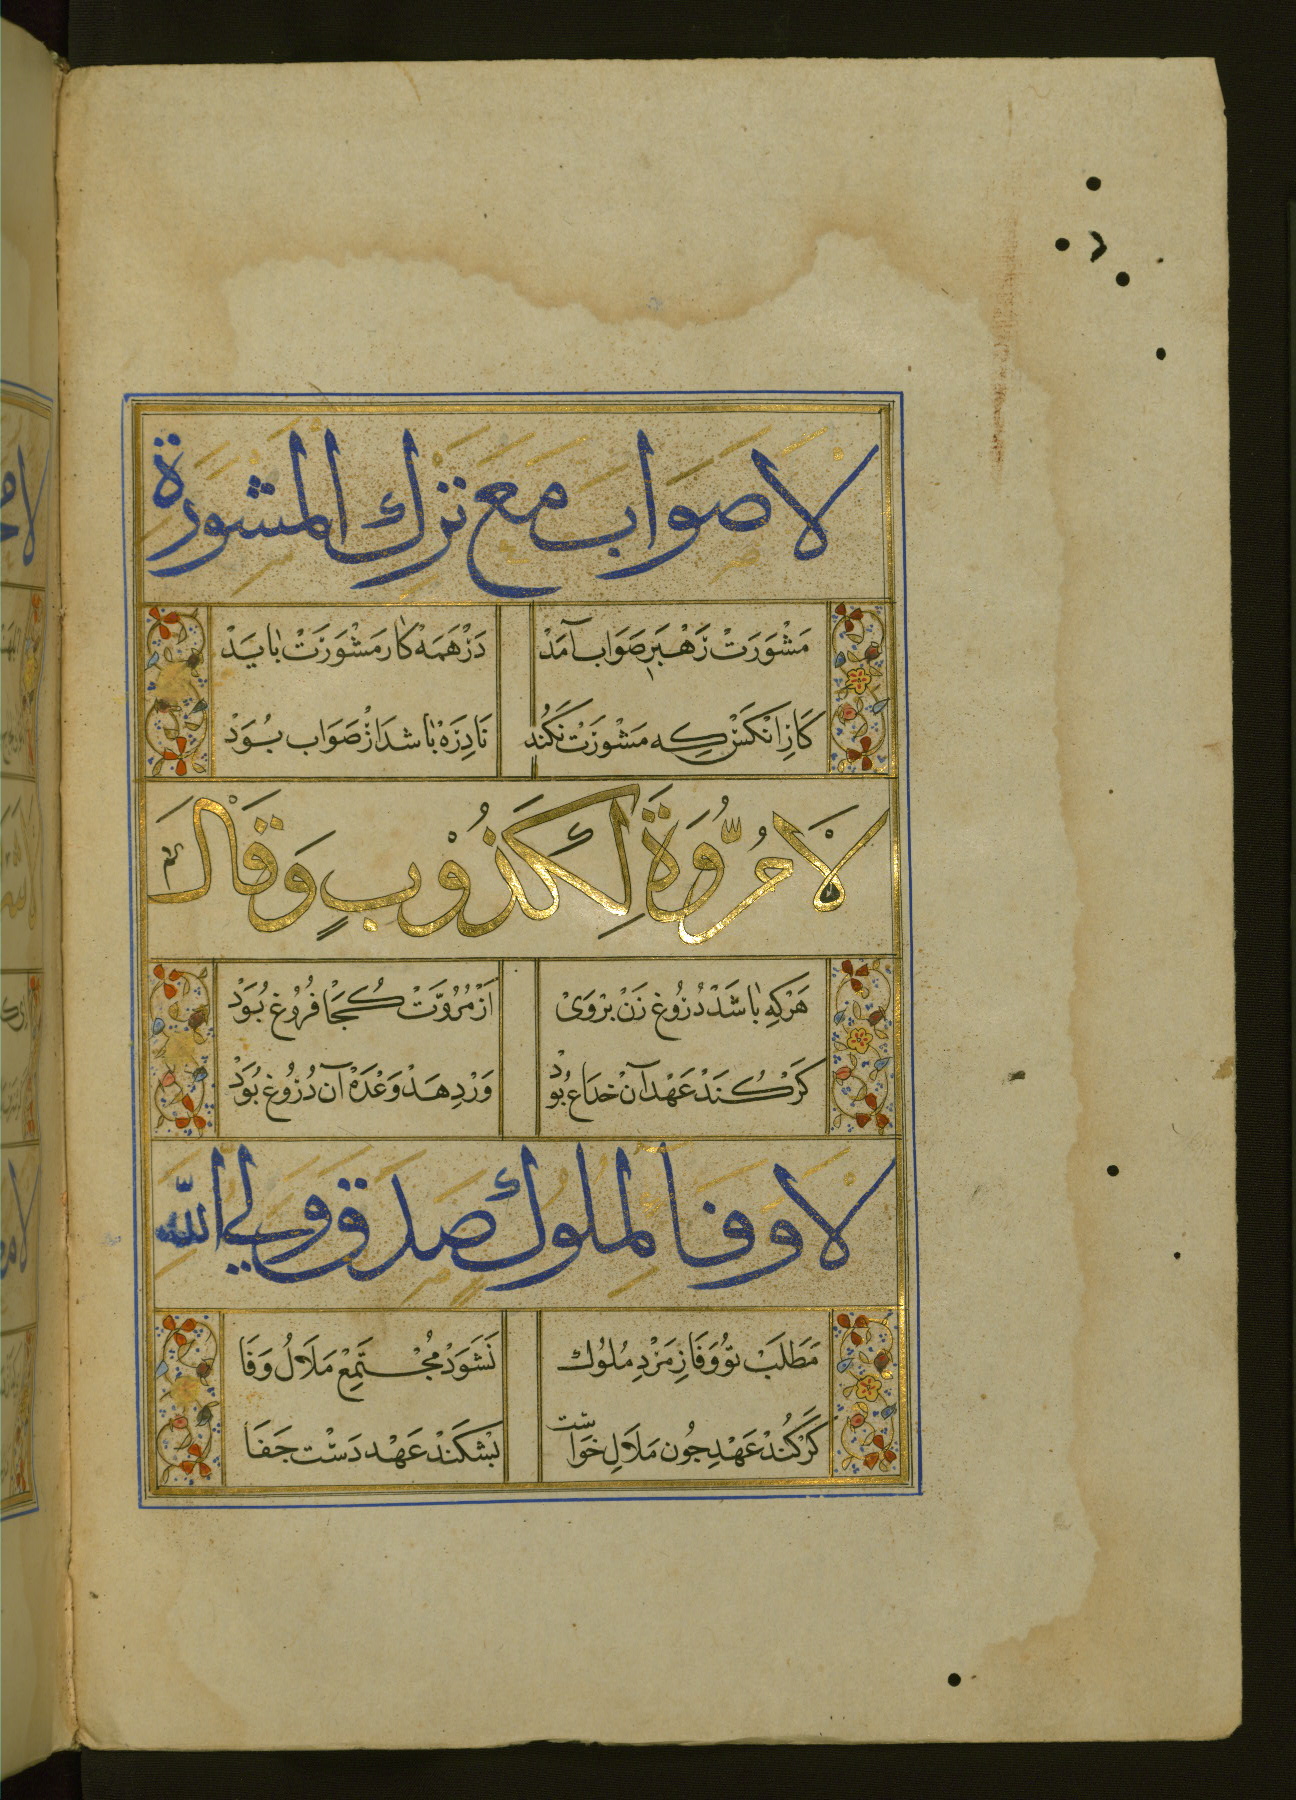 لا صواب مع ترك المشورة
مَشْوَرَتْ رَهْبَرِ صَوَاب آمَدْ دَرْ هَمَهْ كَار مَشْوَرَتْ بَايَدْ
كَارِ انْكَسْ كِه مَشْوَرَتْ نَكُنَد نَادِرَهْ بَاشَد ازْ صَوَاب بُوَدْ
لَا مُرُوَّةَ لِكَذُوْبٍ وَقَالَ
هَرْكِه بَاشَدْ دُرُوغ زَنْ بَرْوَىْ ازْ مُرُوَّتْ كُجَا فُرُوغ بُوَدْ
كَرْ كُنَدْ عَهْد آنْ خِدَاع بُوَدْ وَرْ دِهَدْ وَعْدَهْ آن دُرُوغ بُوَدْ
لا وفا لملوك صدق ولي الله
مَطَلَبْ تُو وَفَا زِ مَرْدِ مُلُوك نَشَوَدْ مُجْتَمِعْ مَلَالُ وَفَا
كَرْ كُنَدْ عَهْد جُون مَلَالِ خَوَاسْت بَشِكَنَدْ عَهْد دَسْت جَفَا